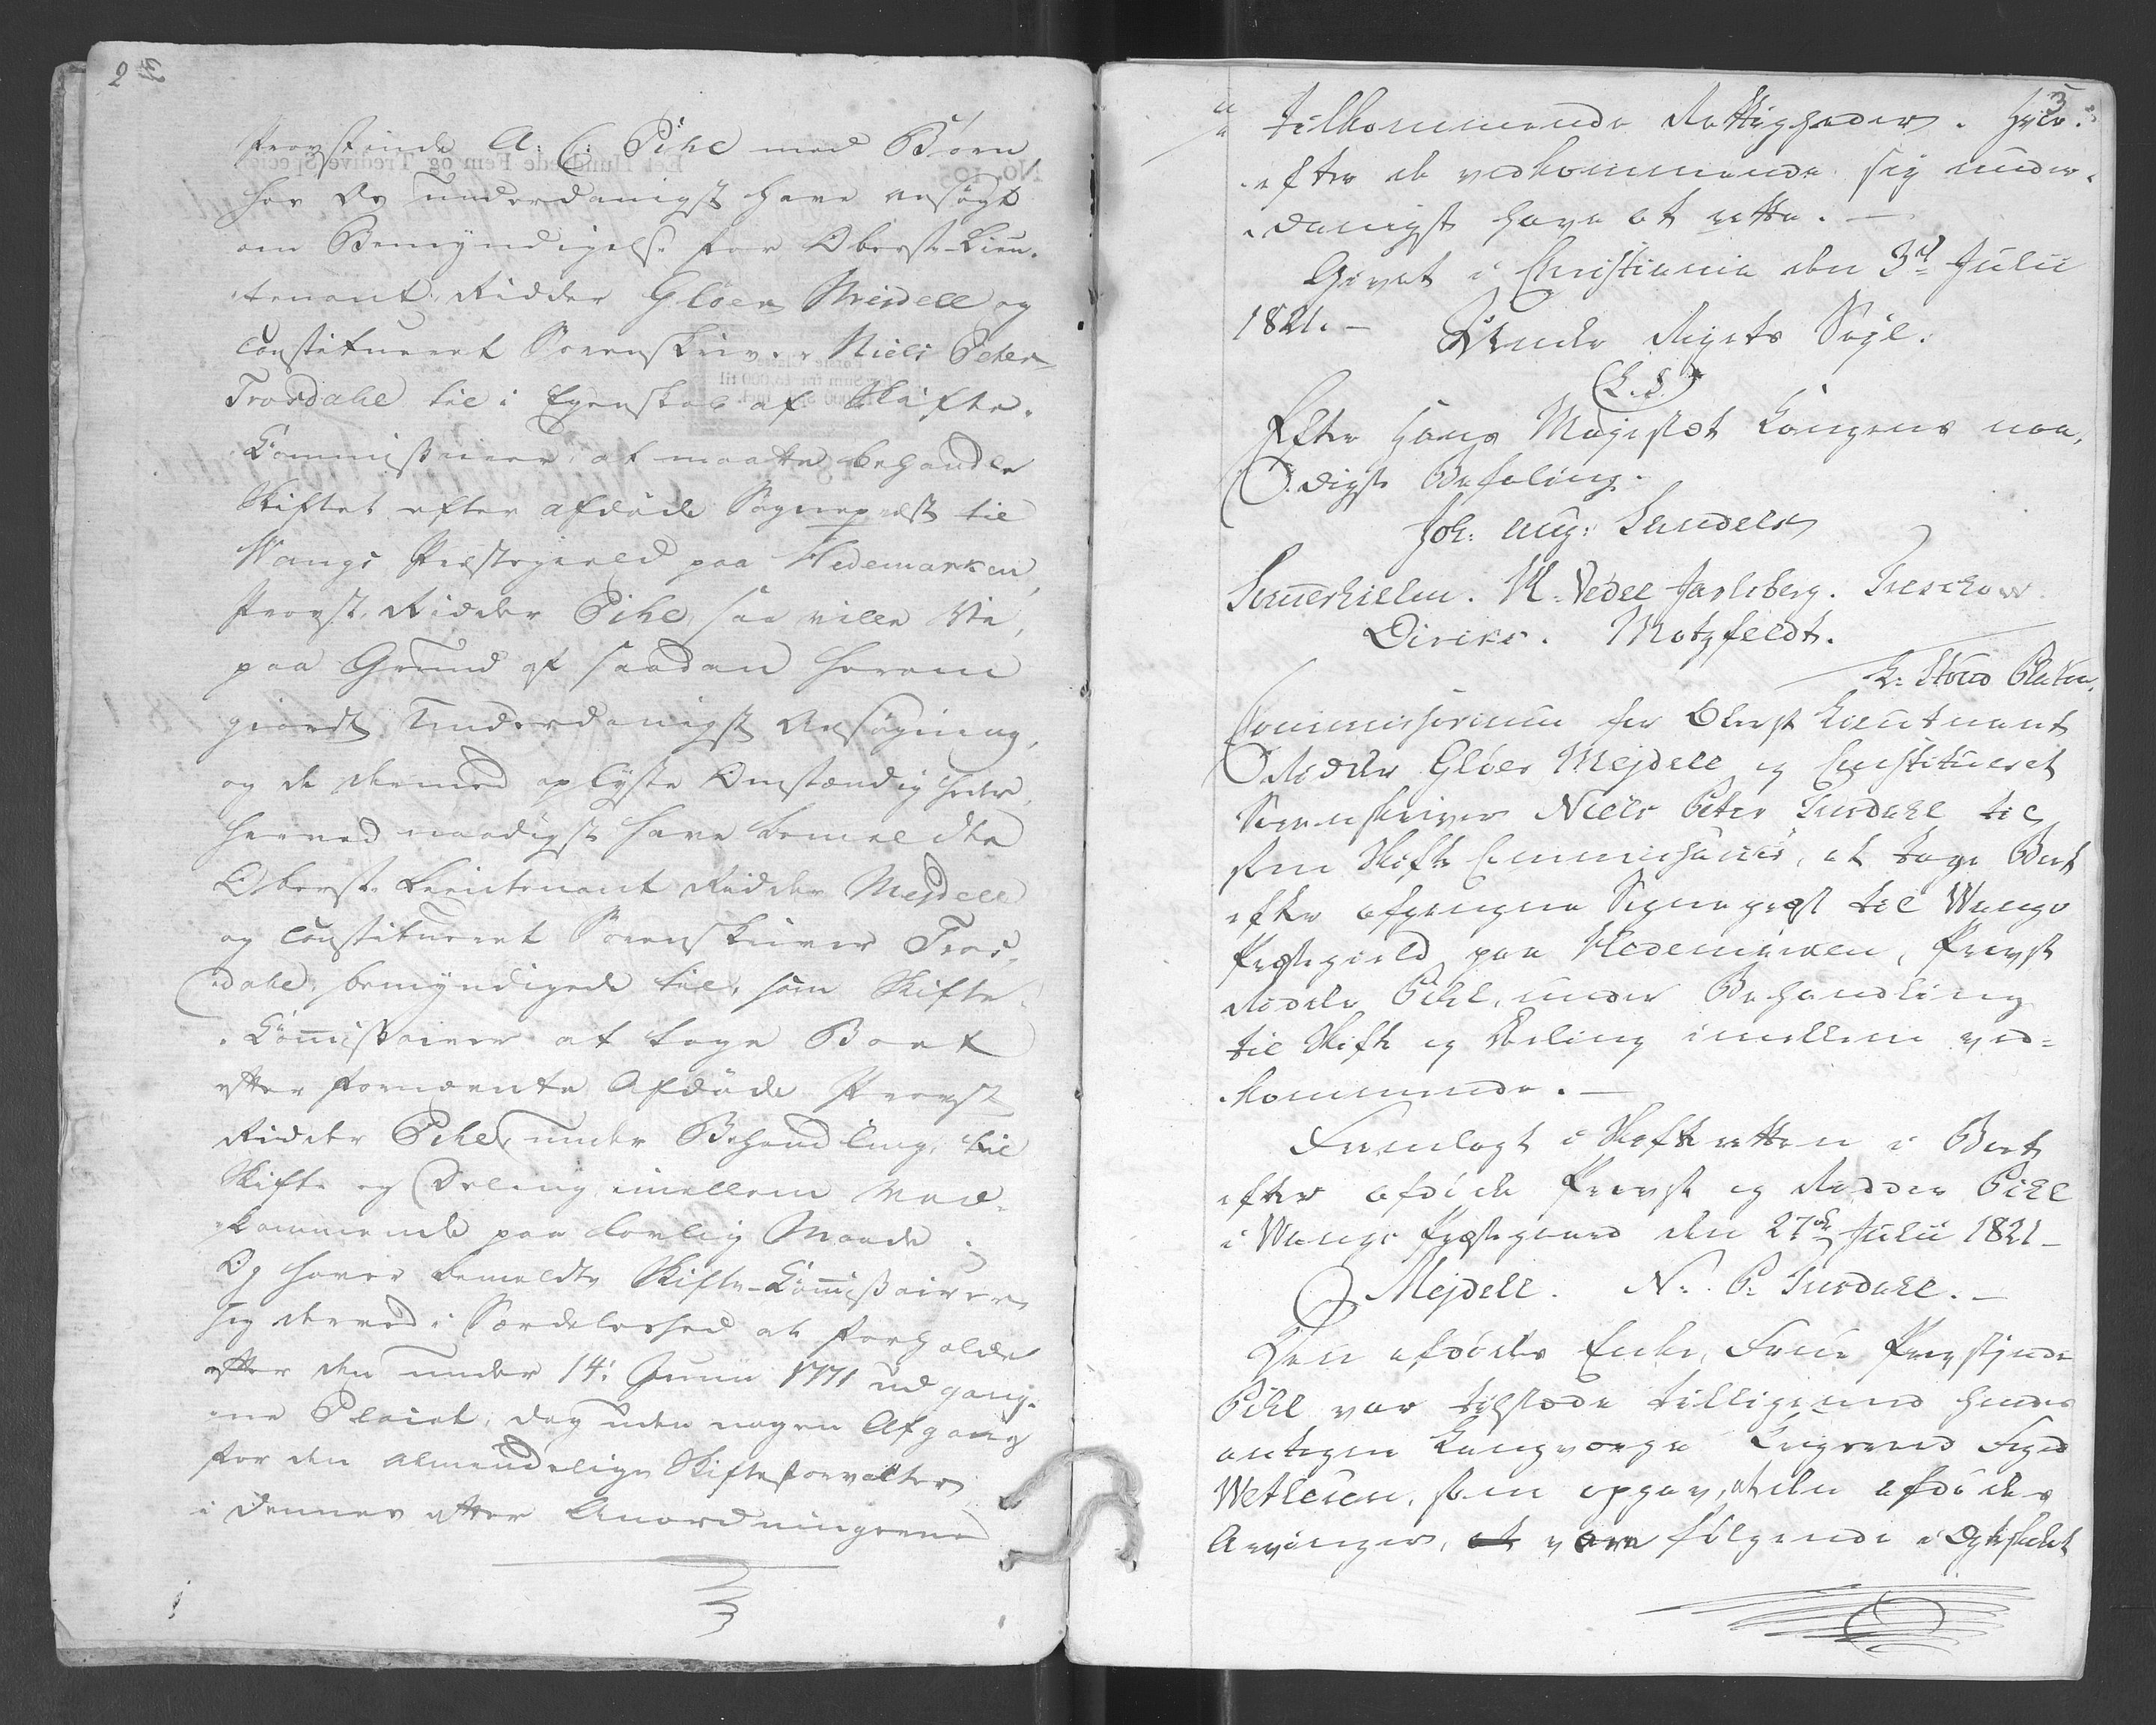 2
Provstinde A: C: Pihl med Børn
har Os underdanigst have ansøgt
om Bemyndigelse for Oberst-Lieu-
tenant, Ridder Gløer Mejdell og
Constitueret Sorenskriver Niels Peter
Trosdahl til i Egenskab af Skifte-
Commissairer, at maatte behandle
Skiftet efter afdøde Sognepræst til
Wangs Præstegield paa Hedemarken,
Provst, Ridder Pihl, saa ville Vi,
paa Grund af saadan herom
giordt underdanigst Ansøgning,
og de dermed oplyste Omstændigheder,
herved naadigst have bemeldte
Oberst-Lieutenant Ridder Mejdell
og Constitueret Sorenskriver Tros-
dahl, bemyndigede til, som Skifte-
Commissairer at tage Boet
efter fornævnte Afdøde Provst
Ridder Pihl, under Behandling, til
Skifte og Deling imellem Ved-
kommende paa lovlig Maade.
Og haver bemeldte Skifte-Commissairer
sig derved i Særdeleshed at forholde
efter den under 14: Junii 1771 udgang-
ne Placat, dog uden nogen Afgang
for den almindelige Skifteforvalter
i dennes efter Anordningerne
3
tilkommende Rettigheder. Hvor-
efter de vedkommende sig under-
danigst have at rette. —
Givet i Christiania den 3d Julii
1821. —
Under Rigets Segl.
(L.S.)
Efter Hans Majestæt Kongens naa-
digste Befaling.
Joh: Aug: Sandels
Sommerhielm. M. Vedel Jarlsberg. Treschow
Diriks. Motzfeldt.
Commissorium for Oberst Lieutnant
Ridder Gløer Mejdell og Constitueret
Sorenskriver Niels Peter Trosdahl til
som Skifte Commissairer, at tage Boet
efter afgangne Sognepræst til Wangs
Præstegield paa Hedemarken, Provst
Ridder Pihl, under Behandling
til Skifte og Deling imellem ved-
kommende. —
Fremlagt i Skifteretten i Boet
efter afdøde Provst og Ridder Pihl
i Wangs Præstegaard den 27de Julii 1821 —
Mejdell. N: P: Trosdahl. —
Den afdødes Enke, Frue Provstjnde
Pihl var tilstæde tilligemed hendes
antagne Laugværge Foged
Wetlesen, som opgav, at den afdødes
Arvinger, at være følgende i Ægteskabet